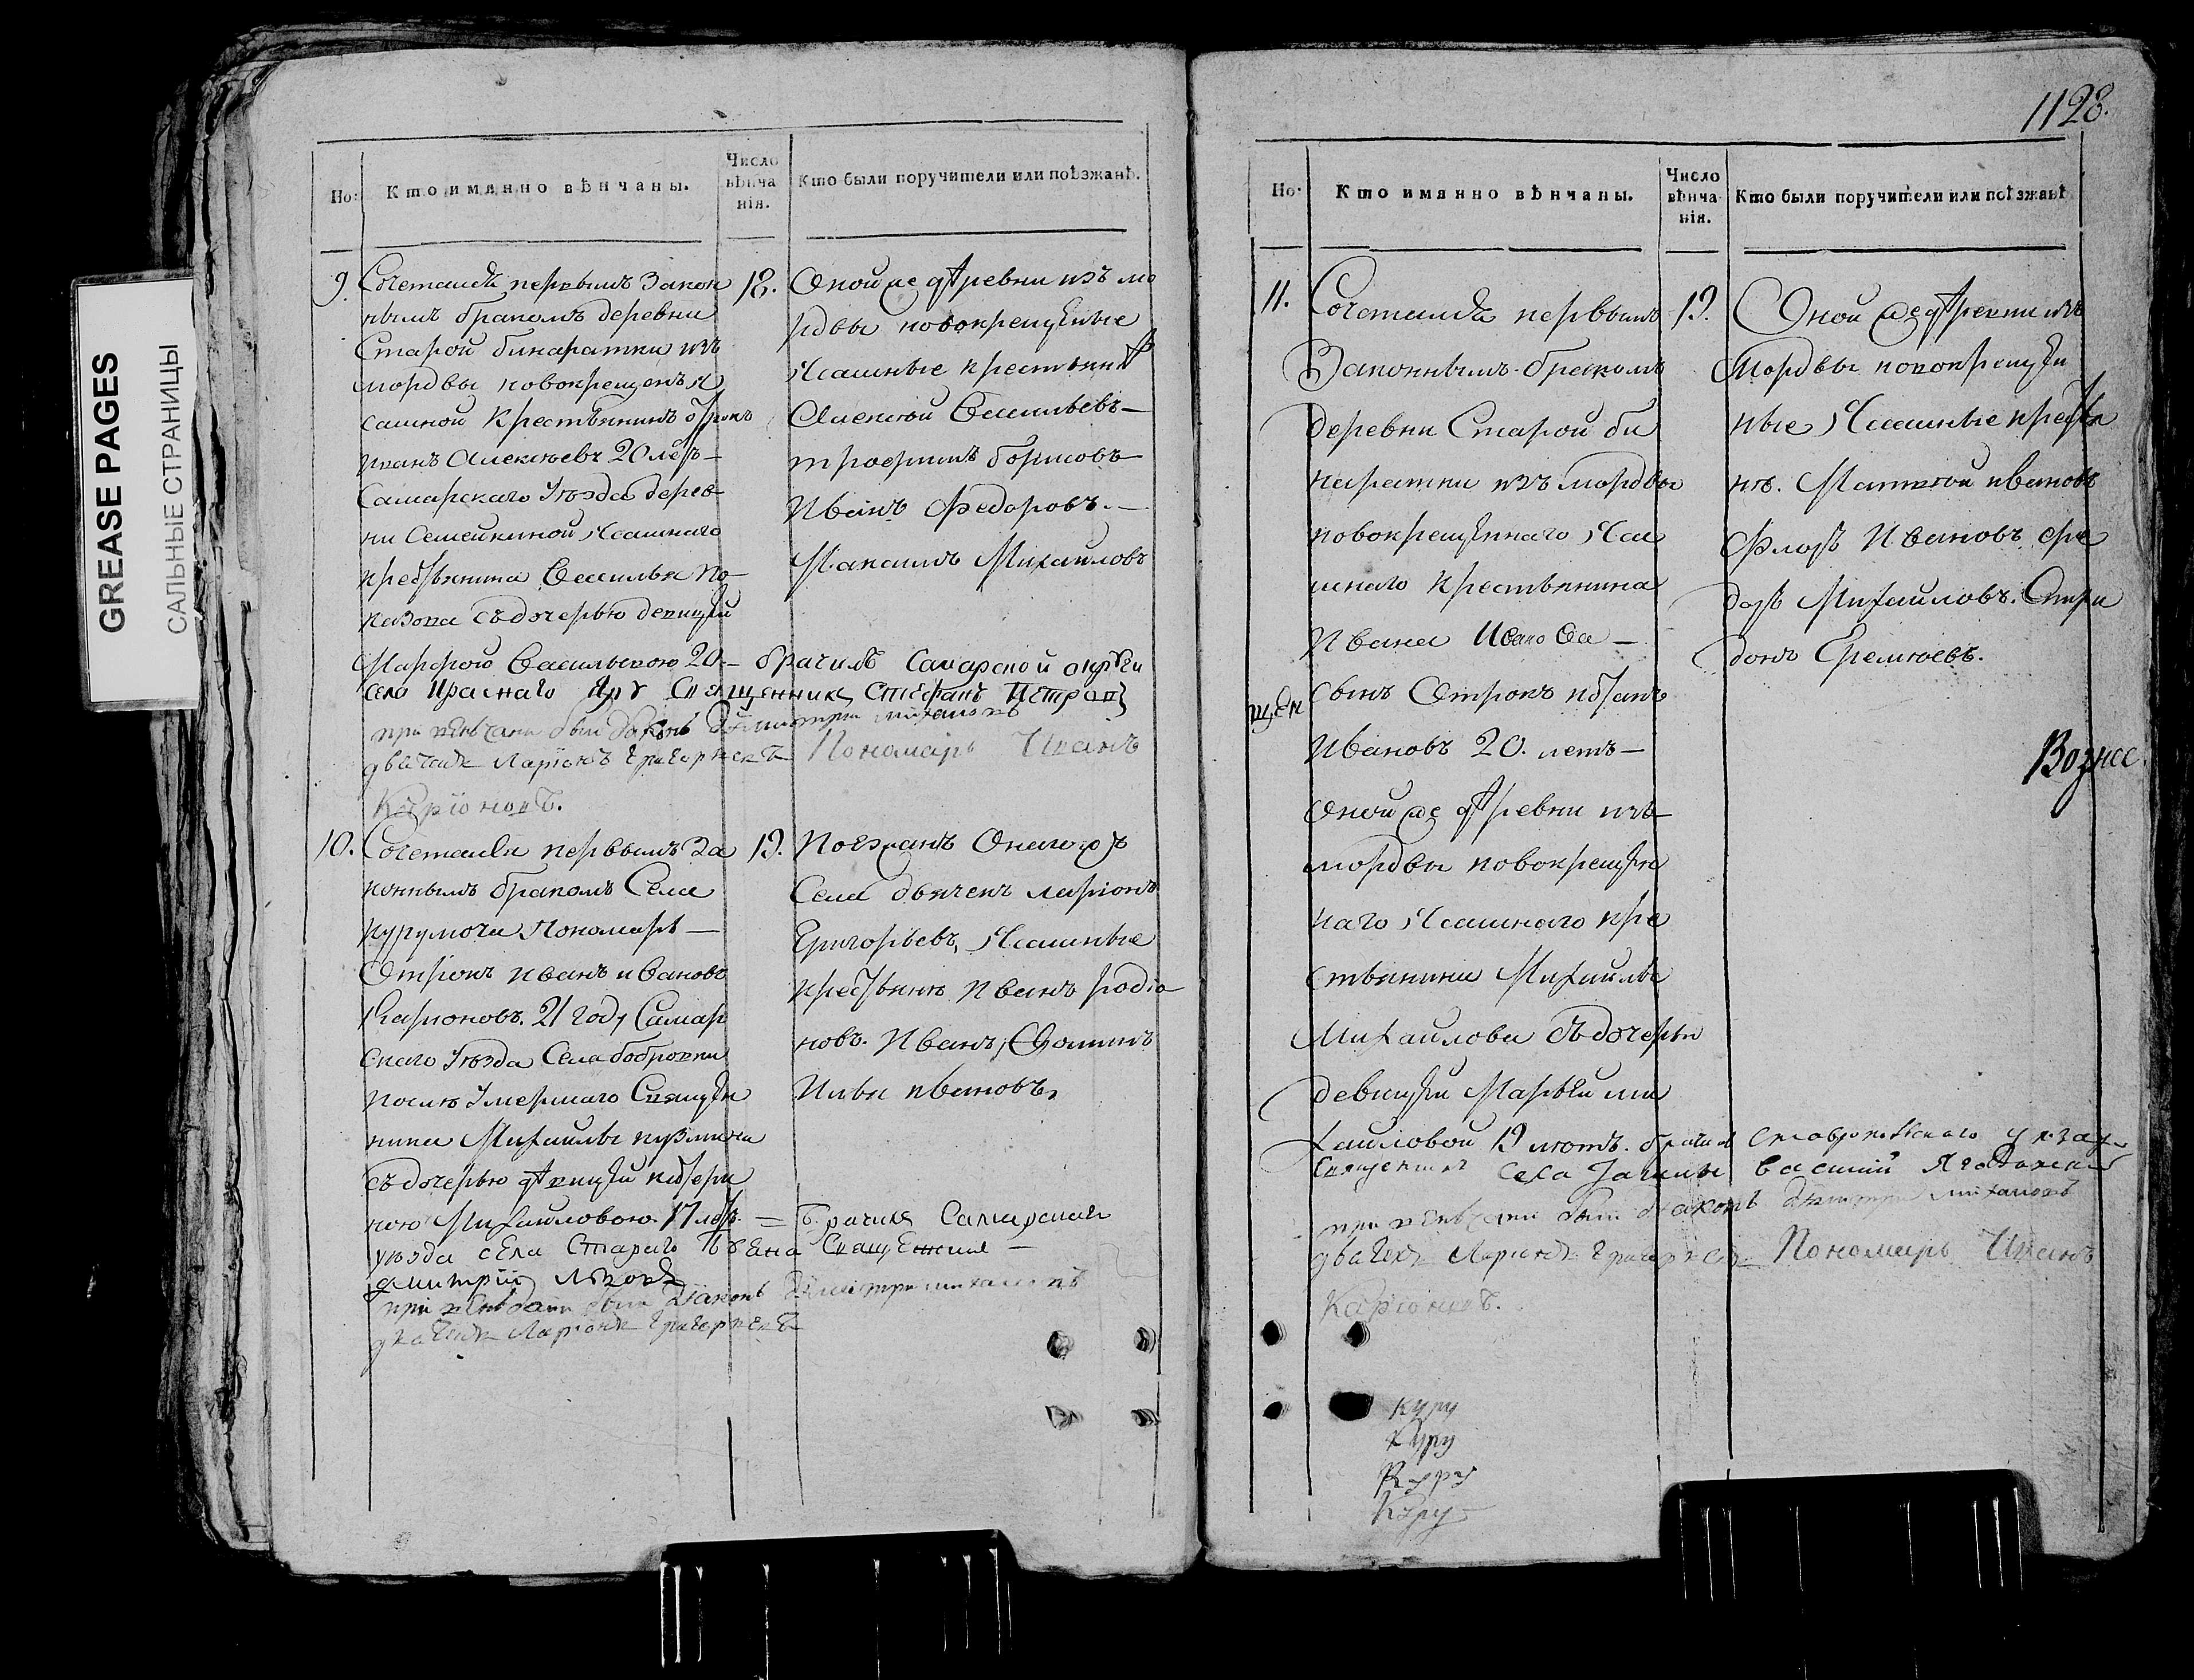 GREASE PAGES
САЛЬНЫЕ СТРАНИЦЫ
Но:
Кто имянно вѣнчаны.
Число вѣнча нія.
Кто были поручители или поѣзжанѣ.
9. Сочетался первымъ закон
нымъ бракомъ деревни
Старой бинаратки изъ
мордвы новокрещенъ я
сашной крестьянинъ отрокъ
иванъ Алексѣевъ 20 летъ
Самарскаго Уѣзда дерев
ни Семейкиной Ясашнаго
крестьянина Василья
съ дочерью девицей
Марфою Васильевою 20.
18.
Оной же деревни изъ мо
рдвы новокрещеные
Ясашные крестьянѣ
Алексѣй Васильевъ
трофимъ борисовъ
Иванъ Федоровъ.
Максимъ Михайловъ
брачилъ Самарской округи
села Краснаго Яру Священникъ Стефанъ Петровъ
при венчани был диаконъ Димитри михаиловъ
дьячокъ Ларионъ Григорьевъ
Пономарь Иванъ
Карионовъ.
10. Сочетался первымъ за
коннымъ бракомъ Села
Курумоча Пономарь
Отрокъ иванъ ивановъ
Карионовъ. 21 году Самар
скаго Уѣзда Села бобровки
послѣ Умершаго Священ
ника Михаила кузмина
съ дочерью девицей катери
ною Михайловою. 17 летъ.
19.
Поезжанѣ Оналогожъ
Села дьячекъ ларионъ
Григорьевъ, Ясашные
крестьянѣ Иванъ родіо
новъ. Иванъ Фоминъ
Илья ивановъ,
брачилъ Самарской
уѣзда села Стараго Священникъ
димитрій
при венчани был диаконъ Димитри михаиловъ
дьячокъ Ларионъ Григорьевъ
1128.
Но:
Кто имянно вѣнчаны.
Число вѣнча нія.
Кто были поручители или поѣзжанѣ
11. Сочетался первымъ
Законнымъ бракомъ
деревни Старой би
наратки изъ мордвы
новокрещеннаго Яса
шнаго крестьянина
Ивана Иванова
сынъ Отрокъ
Ивановъ 20. летъ
оной же деревни изъ
мордвы новокрещен
наго Ясашнаго кре
стьянина Михайла
Михайлова съ дочерью
девицей Марьей ми
хайловой 19 лѣтъ.
щен
19.
Оной же деревни изъ
Мордвы новокрещен
ные Ясашные крестья
нѣ. Матвѣй ивановъ
Флоръ Ивановъ фе
доръ Михайловъ. Спири
донъ Еремѣевъ.
Вознес
брачилъ Ставропольскаго уѣзду
Священникъ села василий
при венчани был диаконъ Димитри михаиловъ
дьячокъ Ларионъ Григорьевъ
Пономарь Иванъ
Карионовъ.
куру
куру
Куру
Куру